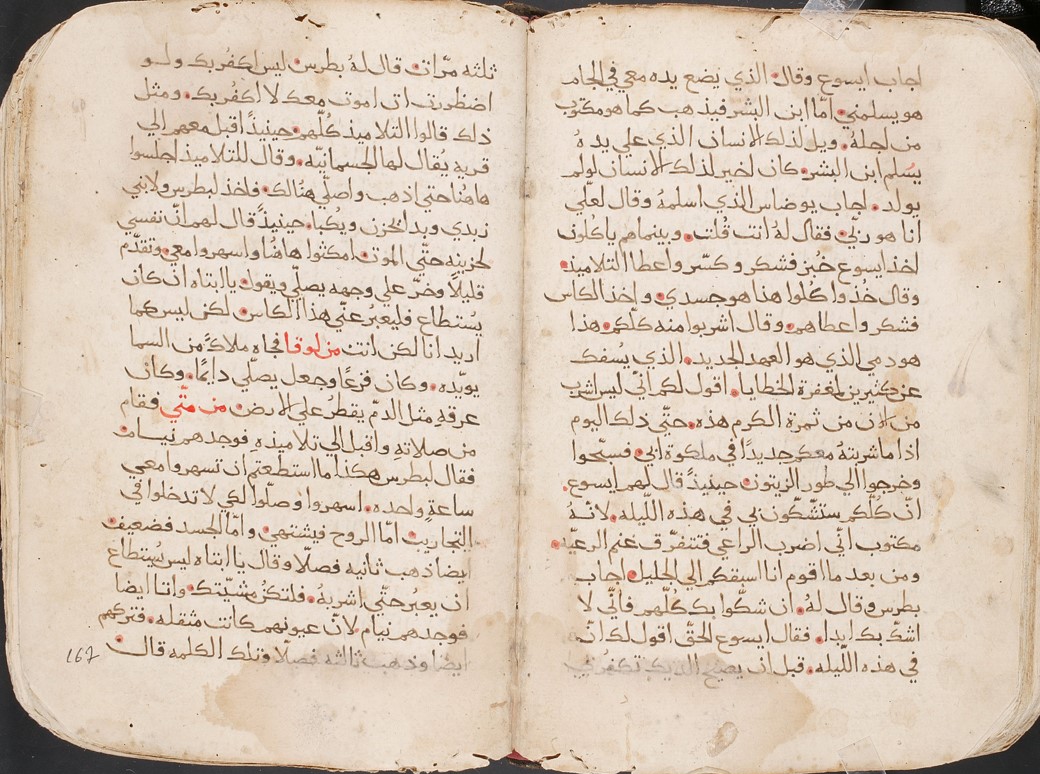 اجاب ايسوع وقال الذي يضع يده معي في الجام
هو يسلمني امّا ابن البشر فيذهب كما هو مكتوب
من اجلهِ ويل لذلك الانسان الذي علي يده
يُسلم ابن البشر كان اخير لذلك الانسان لو لم
يولد اجاب يوضاس الذي اسلمهُ وقال لعلّي
انا هو ربّي فقال لهُ انت قُلت وبينما هم ياكلون
اخذ ايسوع خُبز فشكر وكسّر واعطا التلاميذ
وقال خُذوا كُلوا هذا هو جسدي واخذ الكاس
فشكر واعطاهم وقال اشربوا منه كلّكم هذا
هو دمي الذي هو العهد الجديد الذي يُسفك
عن كثيرين لمغفرة الخطايا اقول لكم انّي ليس اشرب
من الان من ثمرة الكرم هذه حتّي ذلك اليوم
اذا ما شربتهُ معكم جديدًا في ملكوة ابي فسبّحوا
وخرجوا الي طور الزيتون حينيذً قال لهم ايسوع
انّ كُلّكم ستشّكون بي في هذه اللّيله لانّهُ
مكتوب انّي اضرب الراعي فتتفرّق غنم الرعيّه
ومن بعد ما اقوم انا اسبقكم الي الجليل اجاب
بطرس وقال لهُ ان شكّوا بك كُلّهم فانّي لا
اشكّ بك ابدا فقال ايسوع الحقّ اقول لك انّ
في هذه اللّيله قبل ان يصيح الديك تكفُر بي
ثلثه مرّات قال لهُ بطرس ليس اكفُر بك ولو
اضطّررت ان اموت معك لا اكفُر بك ومثل
ذلك قالوا التلاميذ كُلّهم حينيذً اقبل معهم الي
قريه يُقال لها الجسمانيّه وقال للتلاميذ اجلسوا
هاهُنا حتي اذهب واصلّي هنُالك فاخذ لبطرس ولابني
زبدي وبدا يحزن ويُكبا حينيذً قال لهم انّ نفسي
لحزينه حتّي الموت امكثوا هاهُنا واسهروا معي وتقدّم
قليلاً وخرّ علي وجهه يصلّي ويقول يا ابتاه ان كان
يُستطاع فليعبُر عنّي هذا الكاس لكن ليس كما
اريد انا لكن انت من لوقا فجاه ملاكً من السما
يويّده وكان فزعًا وجعل يصلّي دايمًا وكان
عرقهِ مثل الدمّ يقطرُ علي الارض من متّي فقام
من صلاتهِ واقبل الي تلاميذهِ فوجدهم نيام
فقال لبطرس هكذا ما استطعتم ان تسهروا معي
ساعةٍ واحده اسهروا وصلّوا لكي لا تدخلوا في
التجاريب امّا الروح فيشتهي وامّا الجسد فضعيف
ايضا ذهب ثانيه فصلّا وقال يا ابتاه ليس يُستطاع
ان يعبُر حتّي اشربهُ فلتكُن مشيّتك واتا ايضا
فوجدهم نيام لانّ عيونهم كانت مثقله فتركهم
ايضا وذهب ثالثه فصلّا وتلك الكلمه قال
167